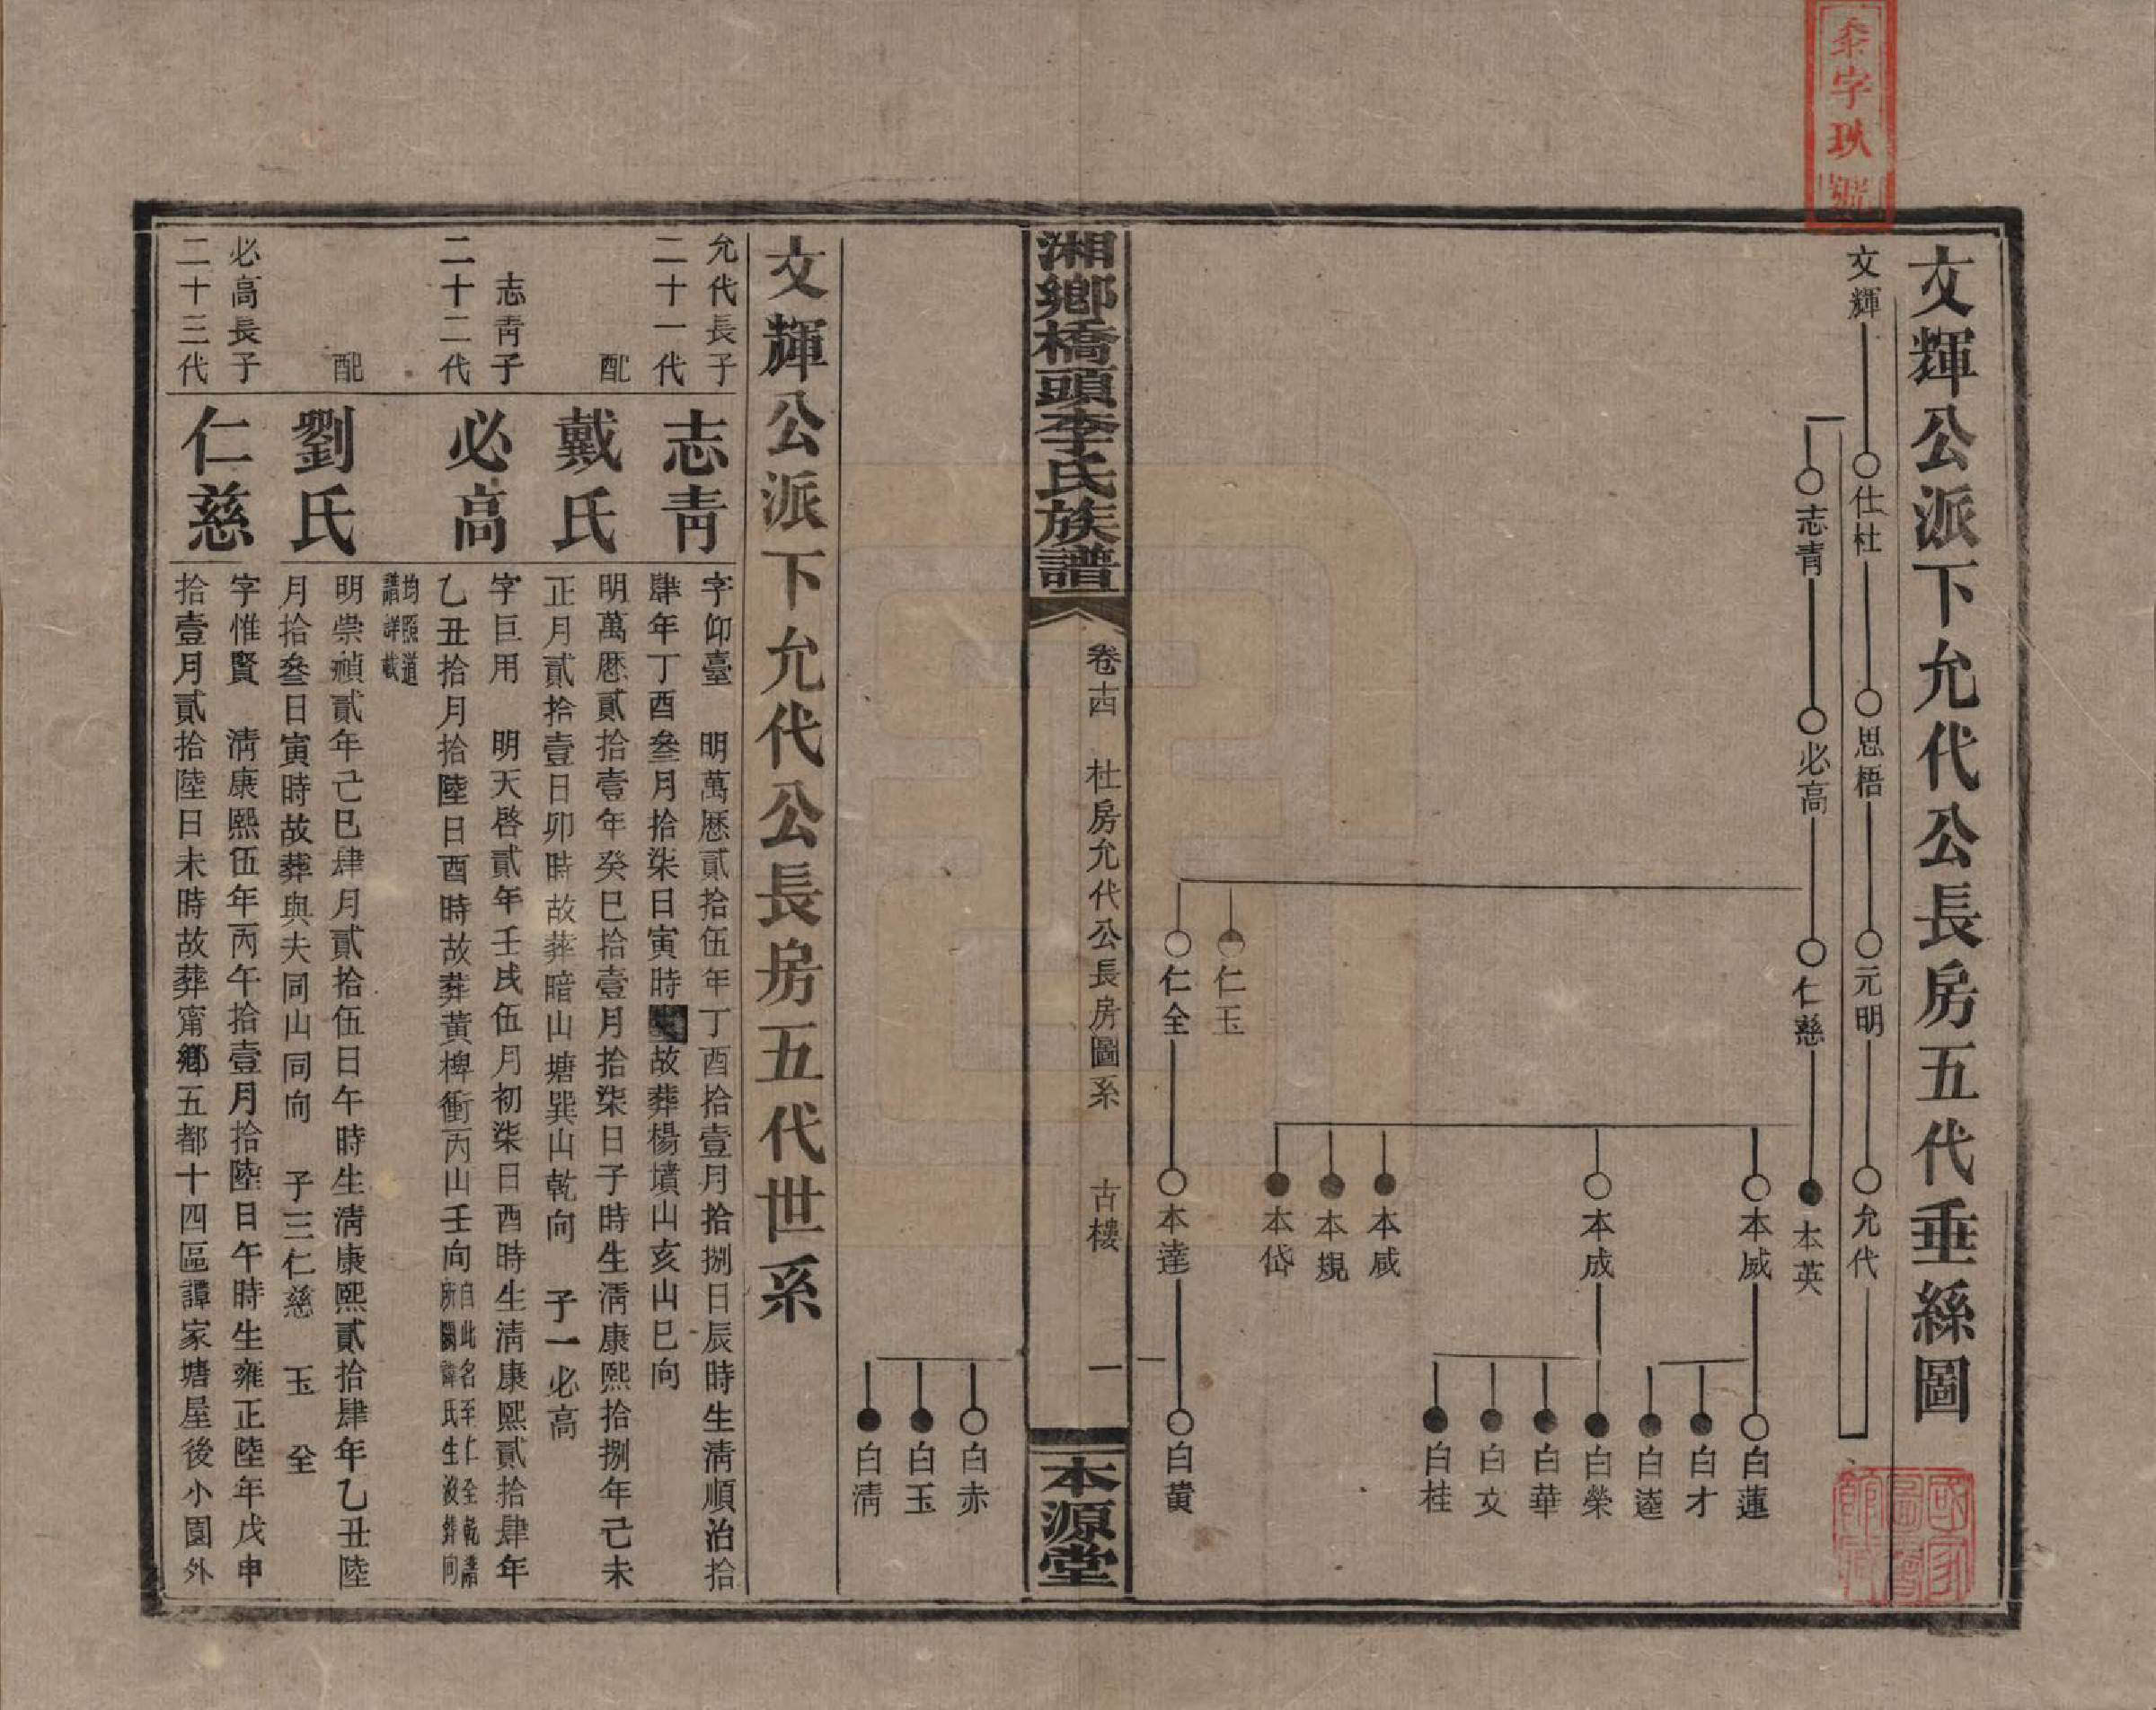 文輝公派下允代公長房五代垂絲圖
文輝
仕杜
思梧
元明
允代
志青
必高
仁慈
本英
本威
白蓮
白才
白逵
本成
白榮
白華
白文
白桂
本咸
本規
本岱
仁玉
仁全
本達
白黃
白赤
白玉
白清
湘鄉橋頭李氏族譜
卷十四 杜房允代公長房圖系 古樓 一
本源堂
文輝公派下允代公長房五代世系
允代長子
二十一代
志青
字仰臺 明萬厯貳拾伍年丁酉拾壹月拾捌日辰時生清順治拾
肆年丁酉叁月拾柒日寅時故葬楊墳山亥山巳向
配
戴氏
明萬厯貳拾壹年癸巳拾壹月拾柒日子時生清康熙拾捌年己未
正月貳拾壹日卯時故葬暗山塘巽山乾向 子一必高
志青子
二十二代
必高
字巨用 明天啓貳年壬戌伍月初柒日酉時生清康熙貳拾肆年
乙丑拾月拾陸日酉時故葬黃椑衝丙山壬向
自此名至仁全乾譜
所闕諱氏生歿葬向
均照道
譜詳載
配
劉氏
明崇禎貳年己巳肆月貳拾伍日午時生清康熙貳拾肆年乙丑陸
月拾叁日寅時故葬與夫同山同向 子三仁慈 玉 全
必高長子
二十三代
仁慈
字惟賢 清康熙伍年丙午拾壹月拾陸日午時生雍正陸年戊申
拾壹月貳拾陸日未時故葬甯鄉五都十四區譚家塘屋後小園外